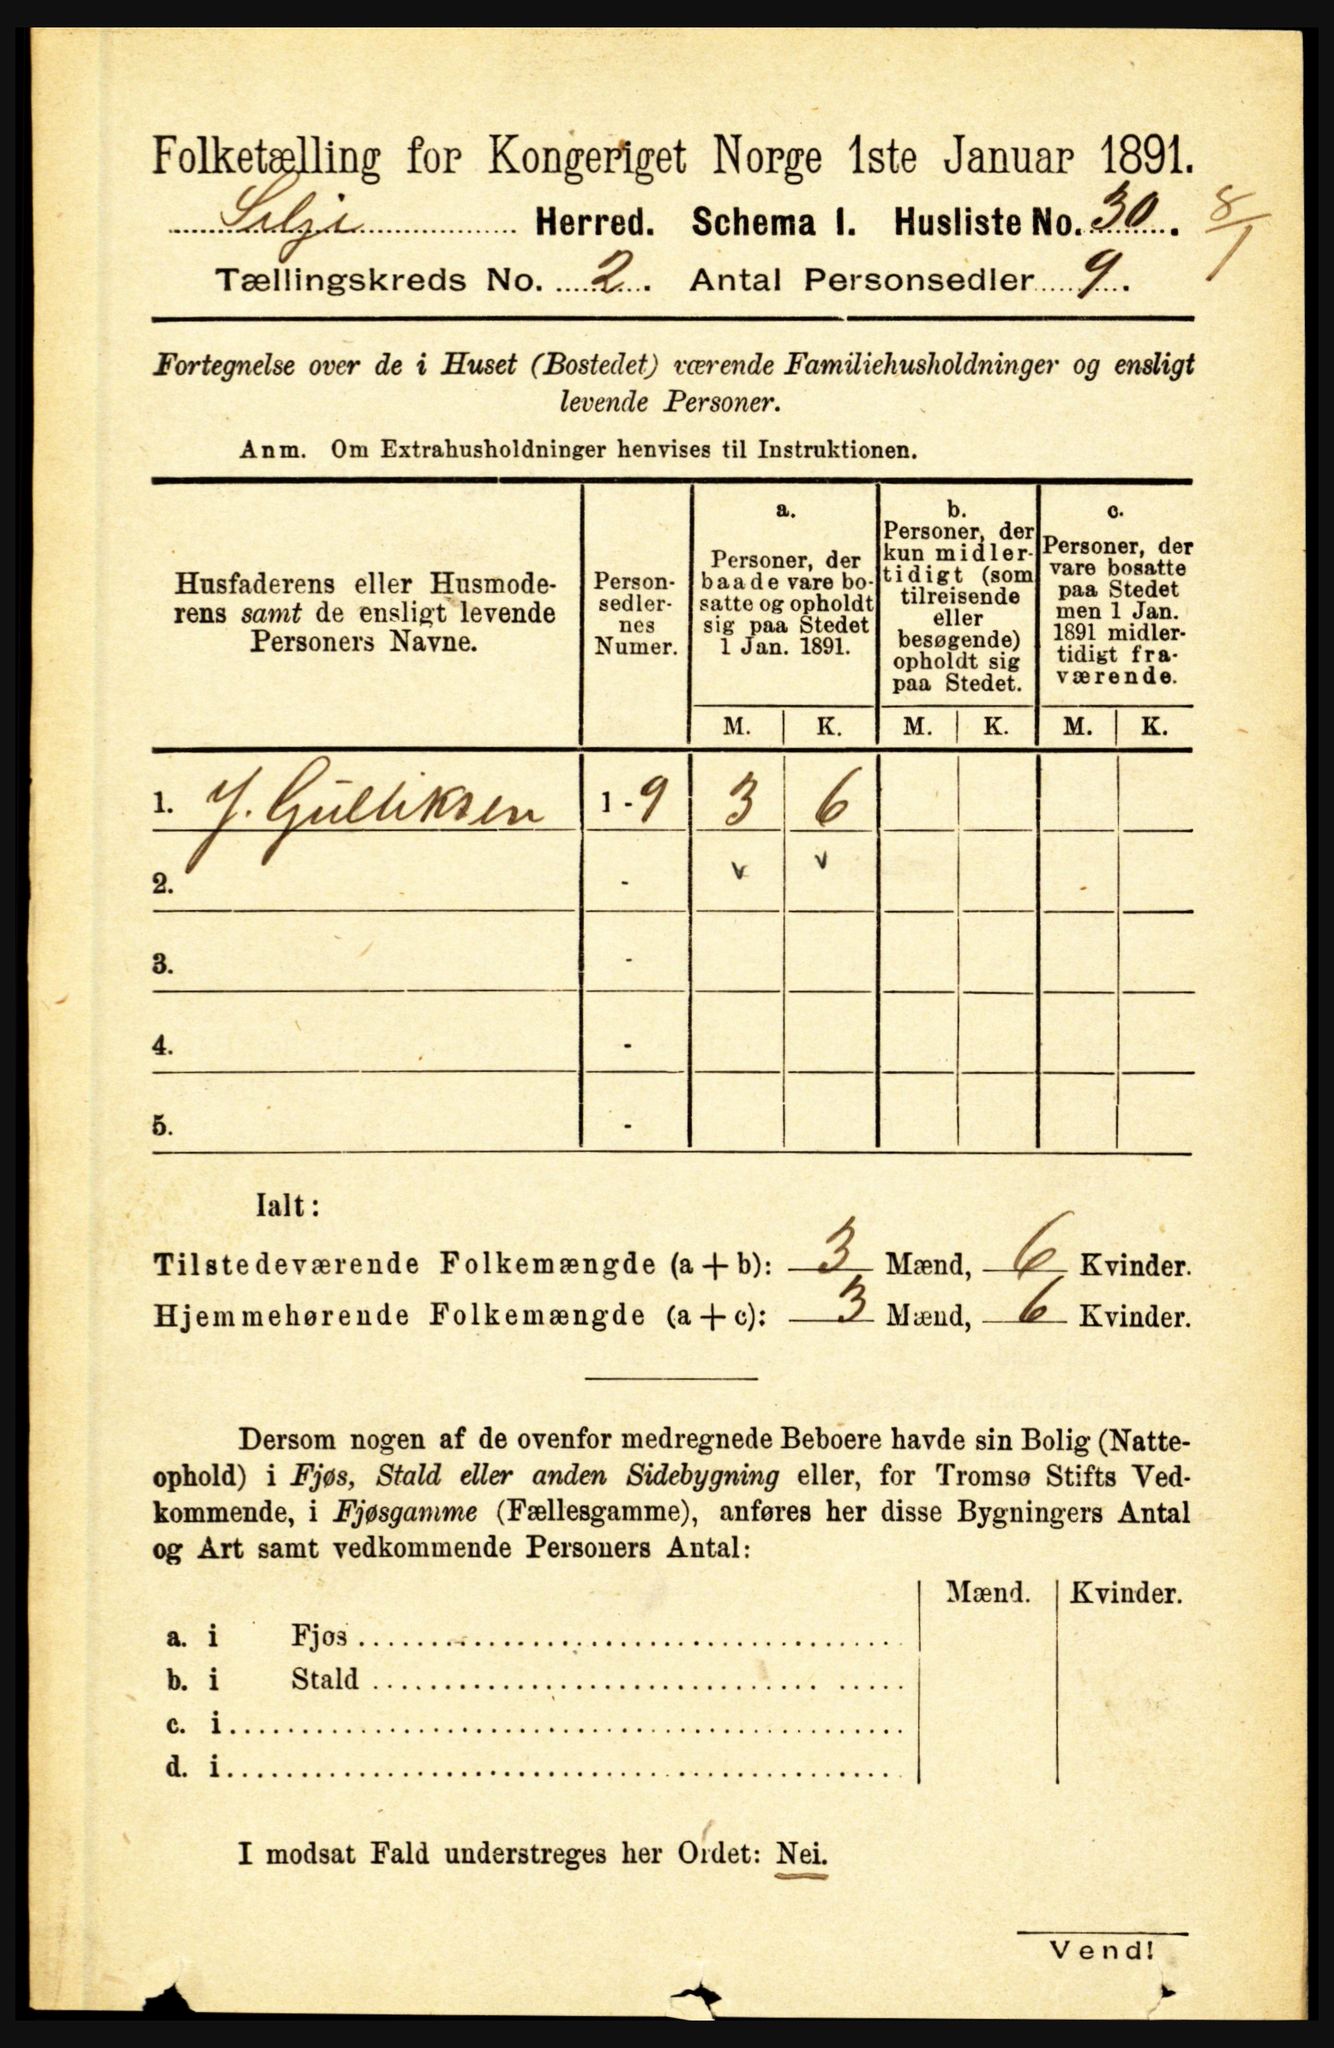 Folketælling for Kongeriget Norge 1ste Januar 1891.
Selje Herred. Schema I. Husliste No. 30. 8/1
Tællingskreds No. 2. Antal Personsedler 9.
Fortegnelse over de i Huset (Bostedet) værende Familiehusholdninger og ensligt
levende Personer.
Anm. Om Extrahusholdninger henvises til Instruktionen.
Husfaderens eller Husmode-
rens samt de ensligt levende
Personers Navne.
Person-
sedler-
nes
Numer.
a.
Personer, der
baade vare bo-
satte og opholdt
sig paa Stedet
1 Jan. 1891.
b.
Personer, der
kun midler-
tidigt (som
tilreisende
eller
besøgende)
opholdt sig
paa Stedet.
c.
Personer, der
vare bosatte
paa Stedet
men 1 Jan.
1891 midler-
tidigt fra-
værende.
M. K. M. K. M. K.
1. J. Gulliksen 1 - 9 3 6
2. - v v
3. -
4. -
5. -
Ialt:
Tilstedeværende Folkemængde (a + b): 3 Mænd, 6 Kvinder.
Hjemmehørende Folkemængde (a + c): 3 Mænd, 6 Kvinder.
Dersom nogen af de ovenfor medregnede Beboere havde sin Bolig (Natte-
ophold) i Fjøs, Stald eller anden Sidebygning eller, for Tromsø Stifts Ved-
kommende, i Fjøsgamme (Fællesgamme), anføres her disse Bygningers Antal
og Art samt vedkommende Personers Antal:
Mænd. Kvinder.
a. i Fjøs
b. i Stald
c. i
d. i
I modsat Fald understreges her Ordet: Nei.
Vend!